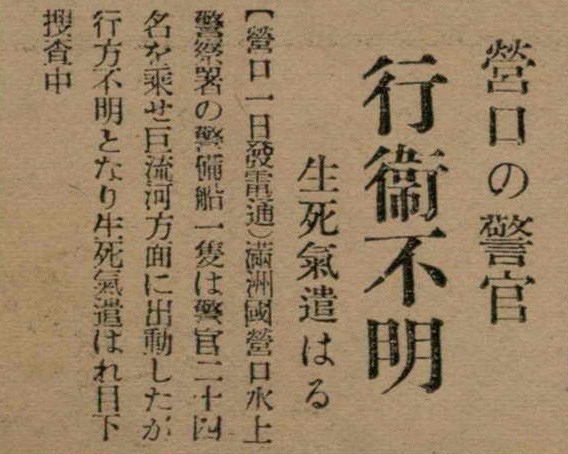 營口の警官
行衞不明
生死氣遣はる
【營口一日發電通】滿洲國營口水上
警察署の警備船一隻は警官二十四
名を乘せ巨流河方面に出動したが
行方不明となり生死氣遣はれ目下
搜査中